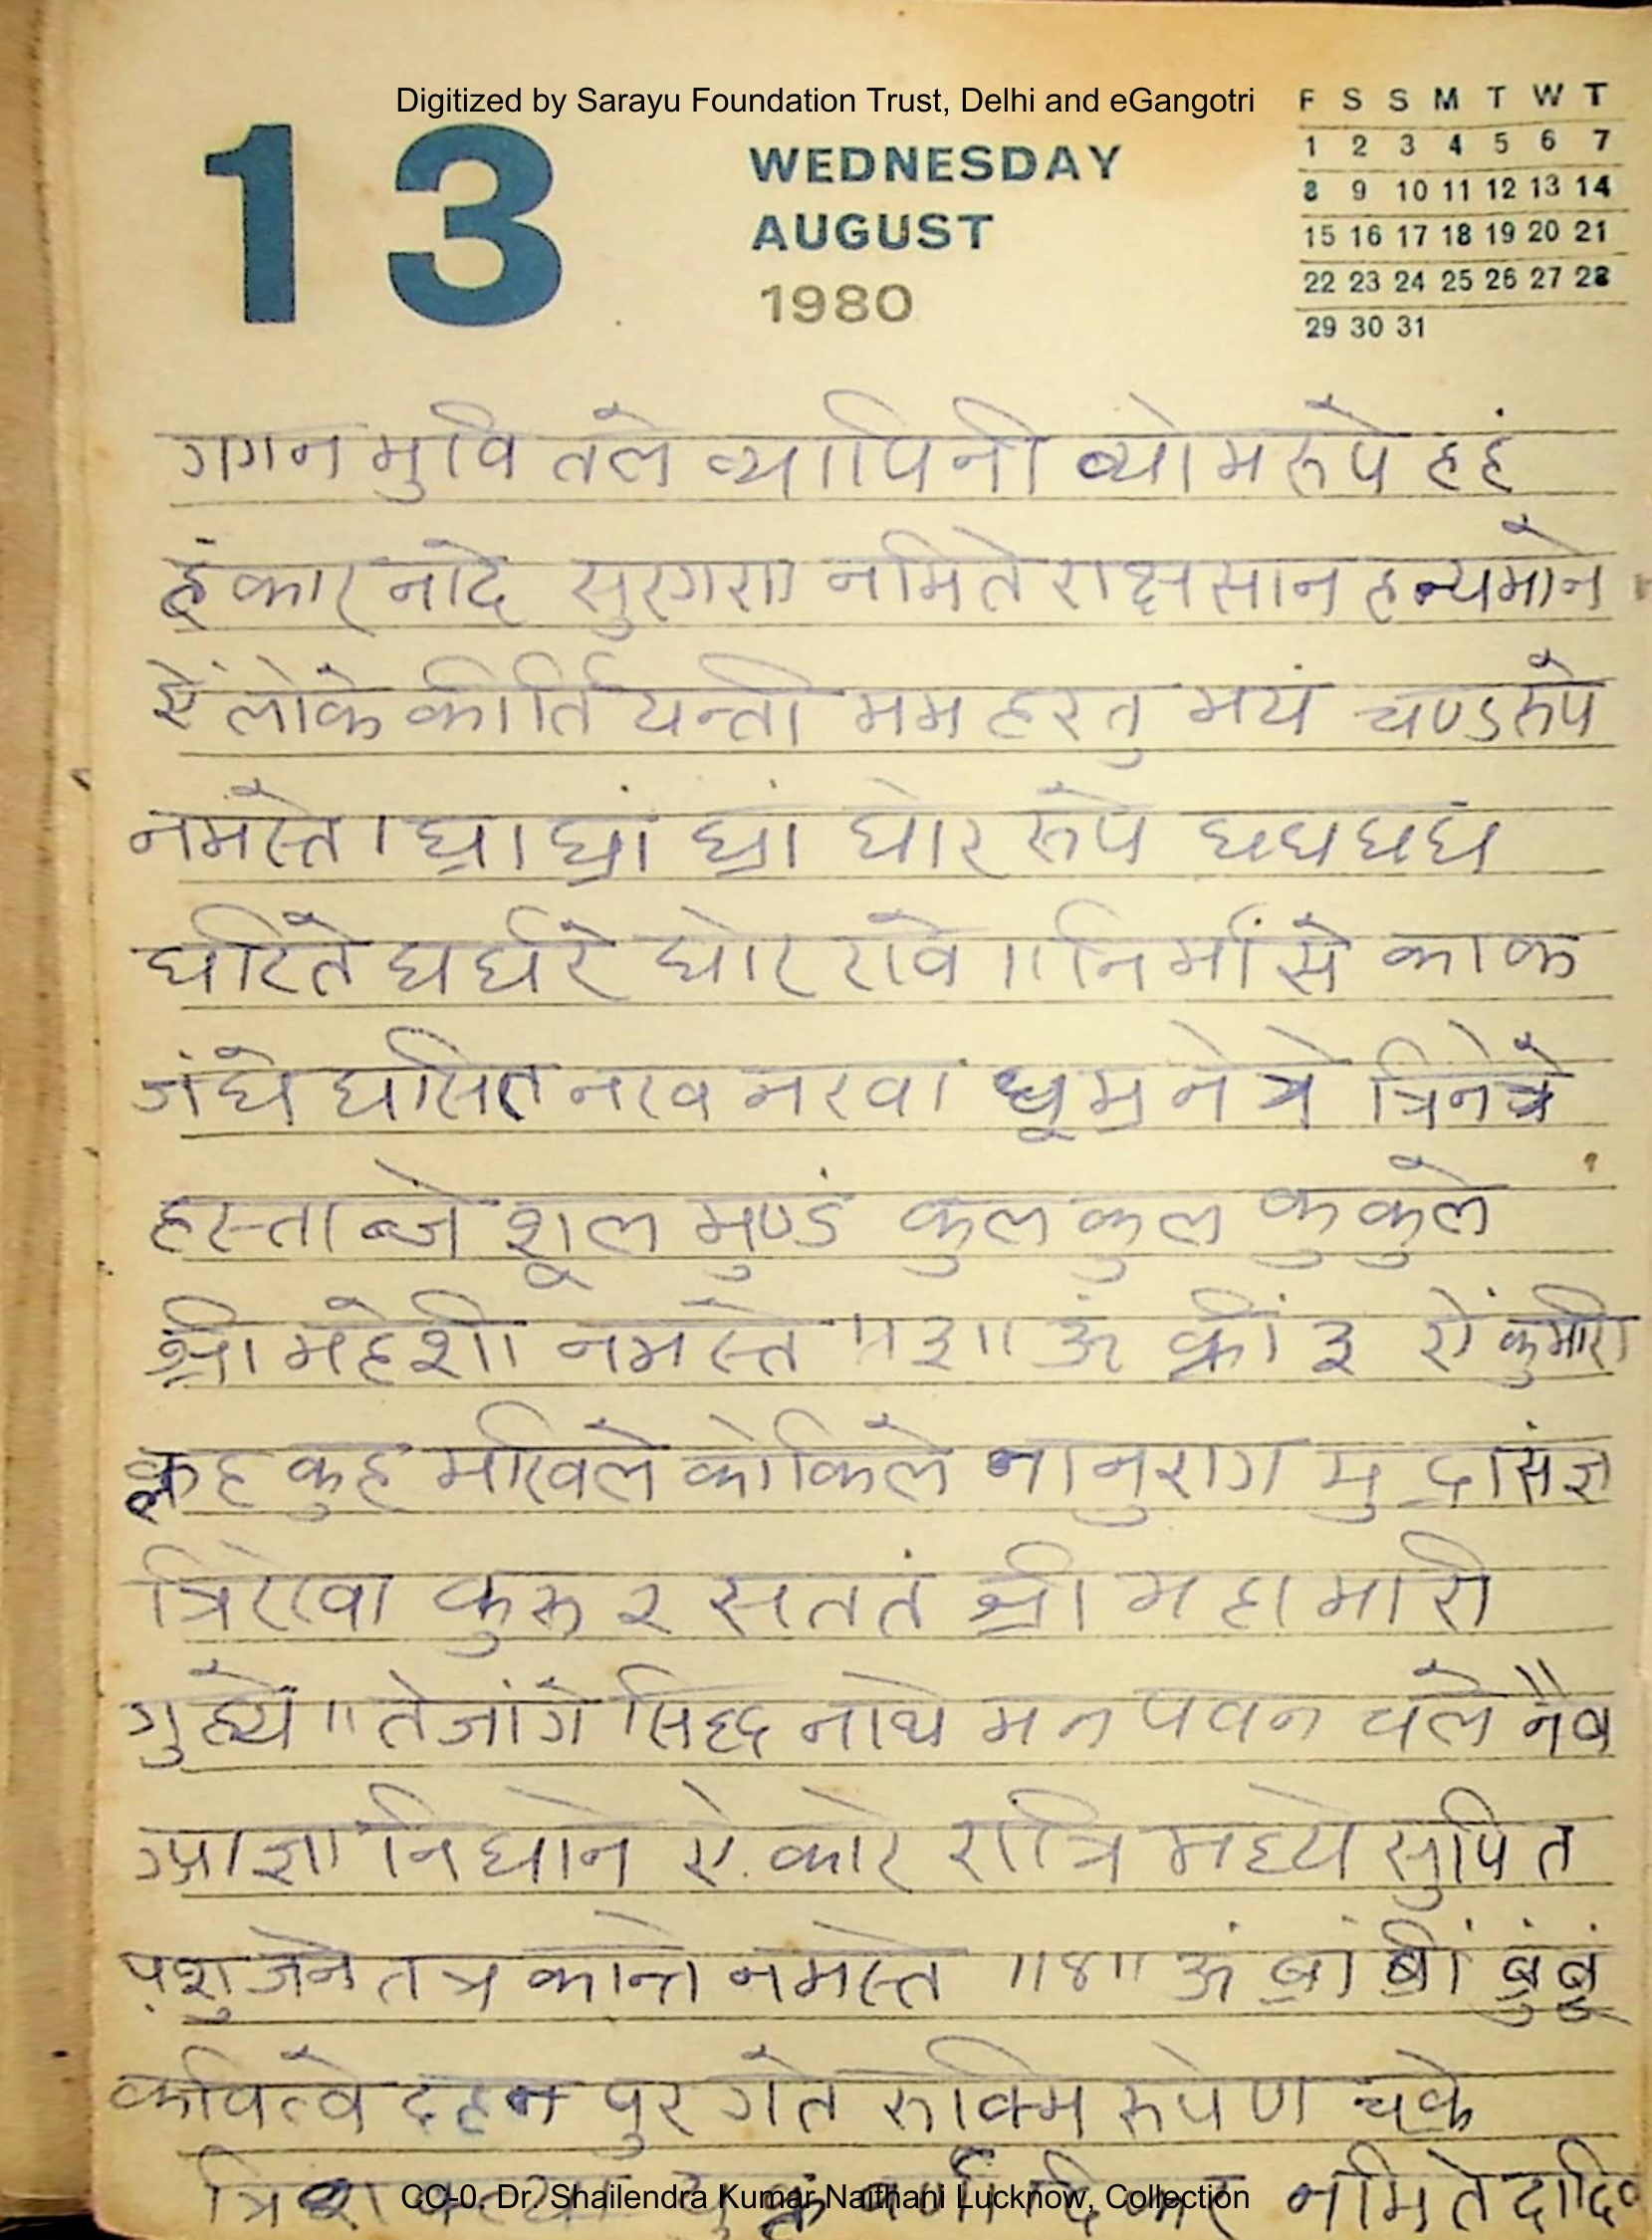 Digitized by Sarayu Foundation Trust, Delhi and eGangotri
F S S M T W T
13 WEDNESDAY 1 2 3 4 5 6 7
AUGUST 8 9 10 11 12 13 14
1980 15 16 17 18 19 20 21
22 23 24 25 26 27 28
29 30 31
गगन मुवि तले व्यापिनी व्योम रूपे हहं
हंकार नादे सुरगरा नमिते राक्षसान हन्यमाने
ऐं लोके कीर्तियन्ती मम हरतु मयं चण्डरूपे
नमस्ते । घ्रा घ्रां घ्रां घोर रूपे घघघघ
घरिते घर्घरे घोर रावे ॥ निर्मांसे काक
जंघे घसित नख नखा धूम्र नेत्रे त्रिनेत्रे
हस्ताब्जे शूल मुण्डं कुल कुल कुकुले
श्री महेशी नमस्ते ॥३॥ ऊं क्रीं ३ ऐं कुमारी
कुह कुह मखिले कोकिले नानुराग मुद्रासंज्ञ
त्रिरेखा कुरु २ सततं श्री महामारी
गुह्ये ॥ तेजांगे सिद्ध नाथे मन पवन चले नैव
आज्ञा निधाने ऐंकारे रात्रि मध्ये सुपित
पशु जने तत्र कान्ते नमस्ते ॥४॥ ऊं ब्रां ब्रीं ब्रुं ब्रूं
कवित्वे दहन पुर गते रुक्मि रूपेण चक्रे
नमिते दादिव
CC-0. Dr. Shailendra Kumar Naithani Lucknow, Collection